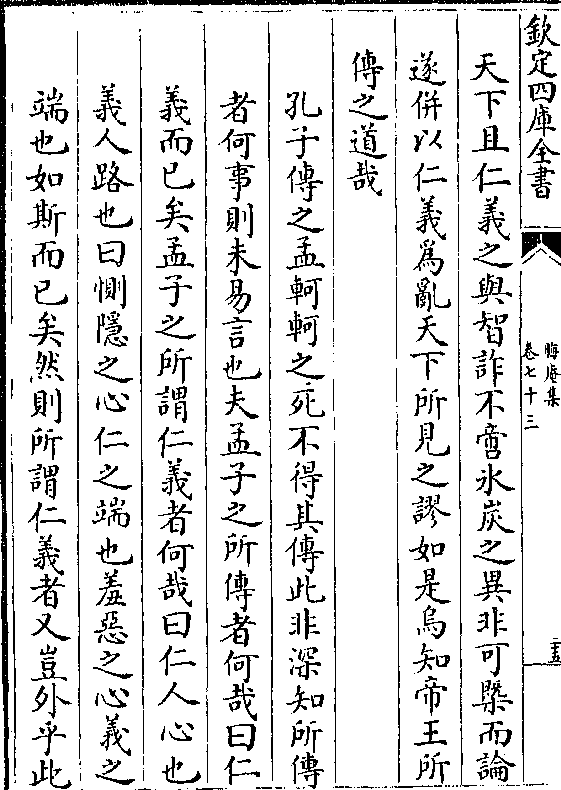 欽定四庫全書
晦庵集
卷七十三
二五
天下且仁義之與智詐不啻氷炭之異非可槩而論
遂併以仁義爲亂天下所見之謬如是烏知帝王所
傳之道哉
孔子傳之孟軻軻之死不得其傳此非深知所傳
者何事則未易言也夫孟子之所傳者何哉曰仁
義而已矣孟子之所謂仁義者何哉曰仁人心也
義人路也曰惻隱之心仁之端也羞惡之心義之
端也如斯而已矣然則所謂仁義者又豈外乎此